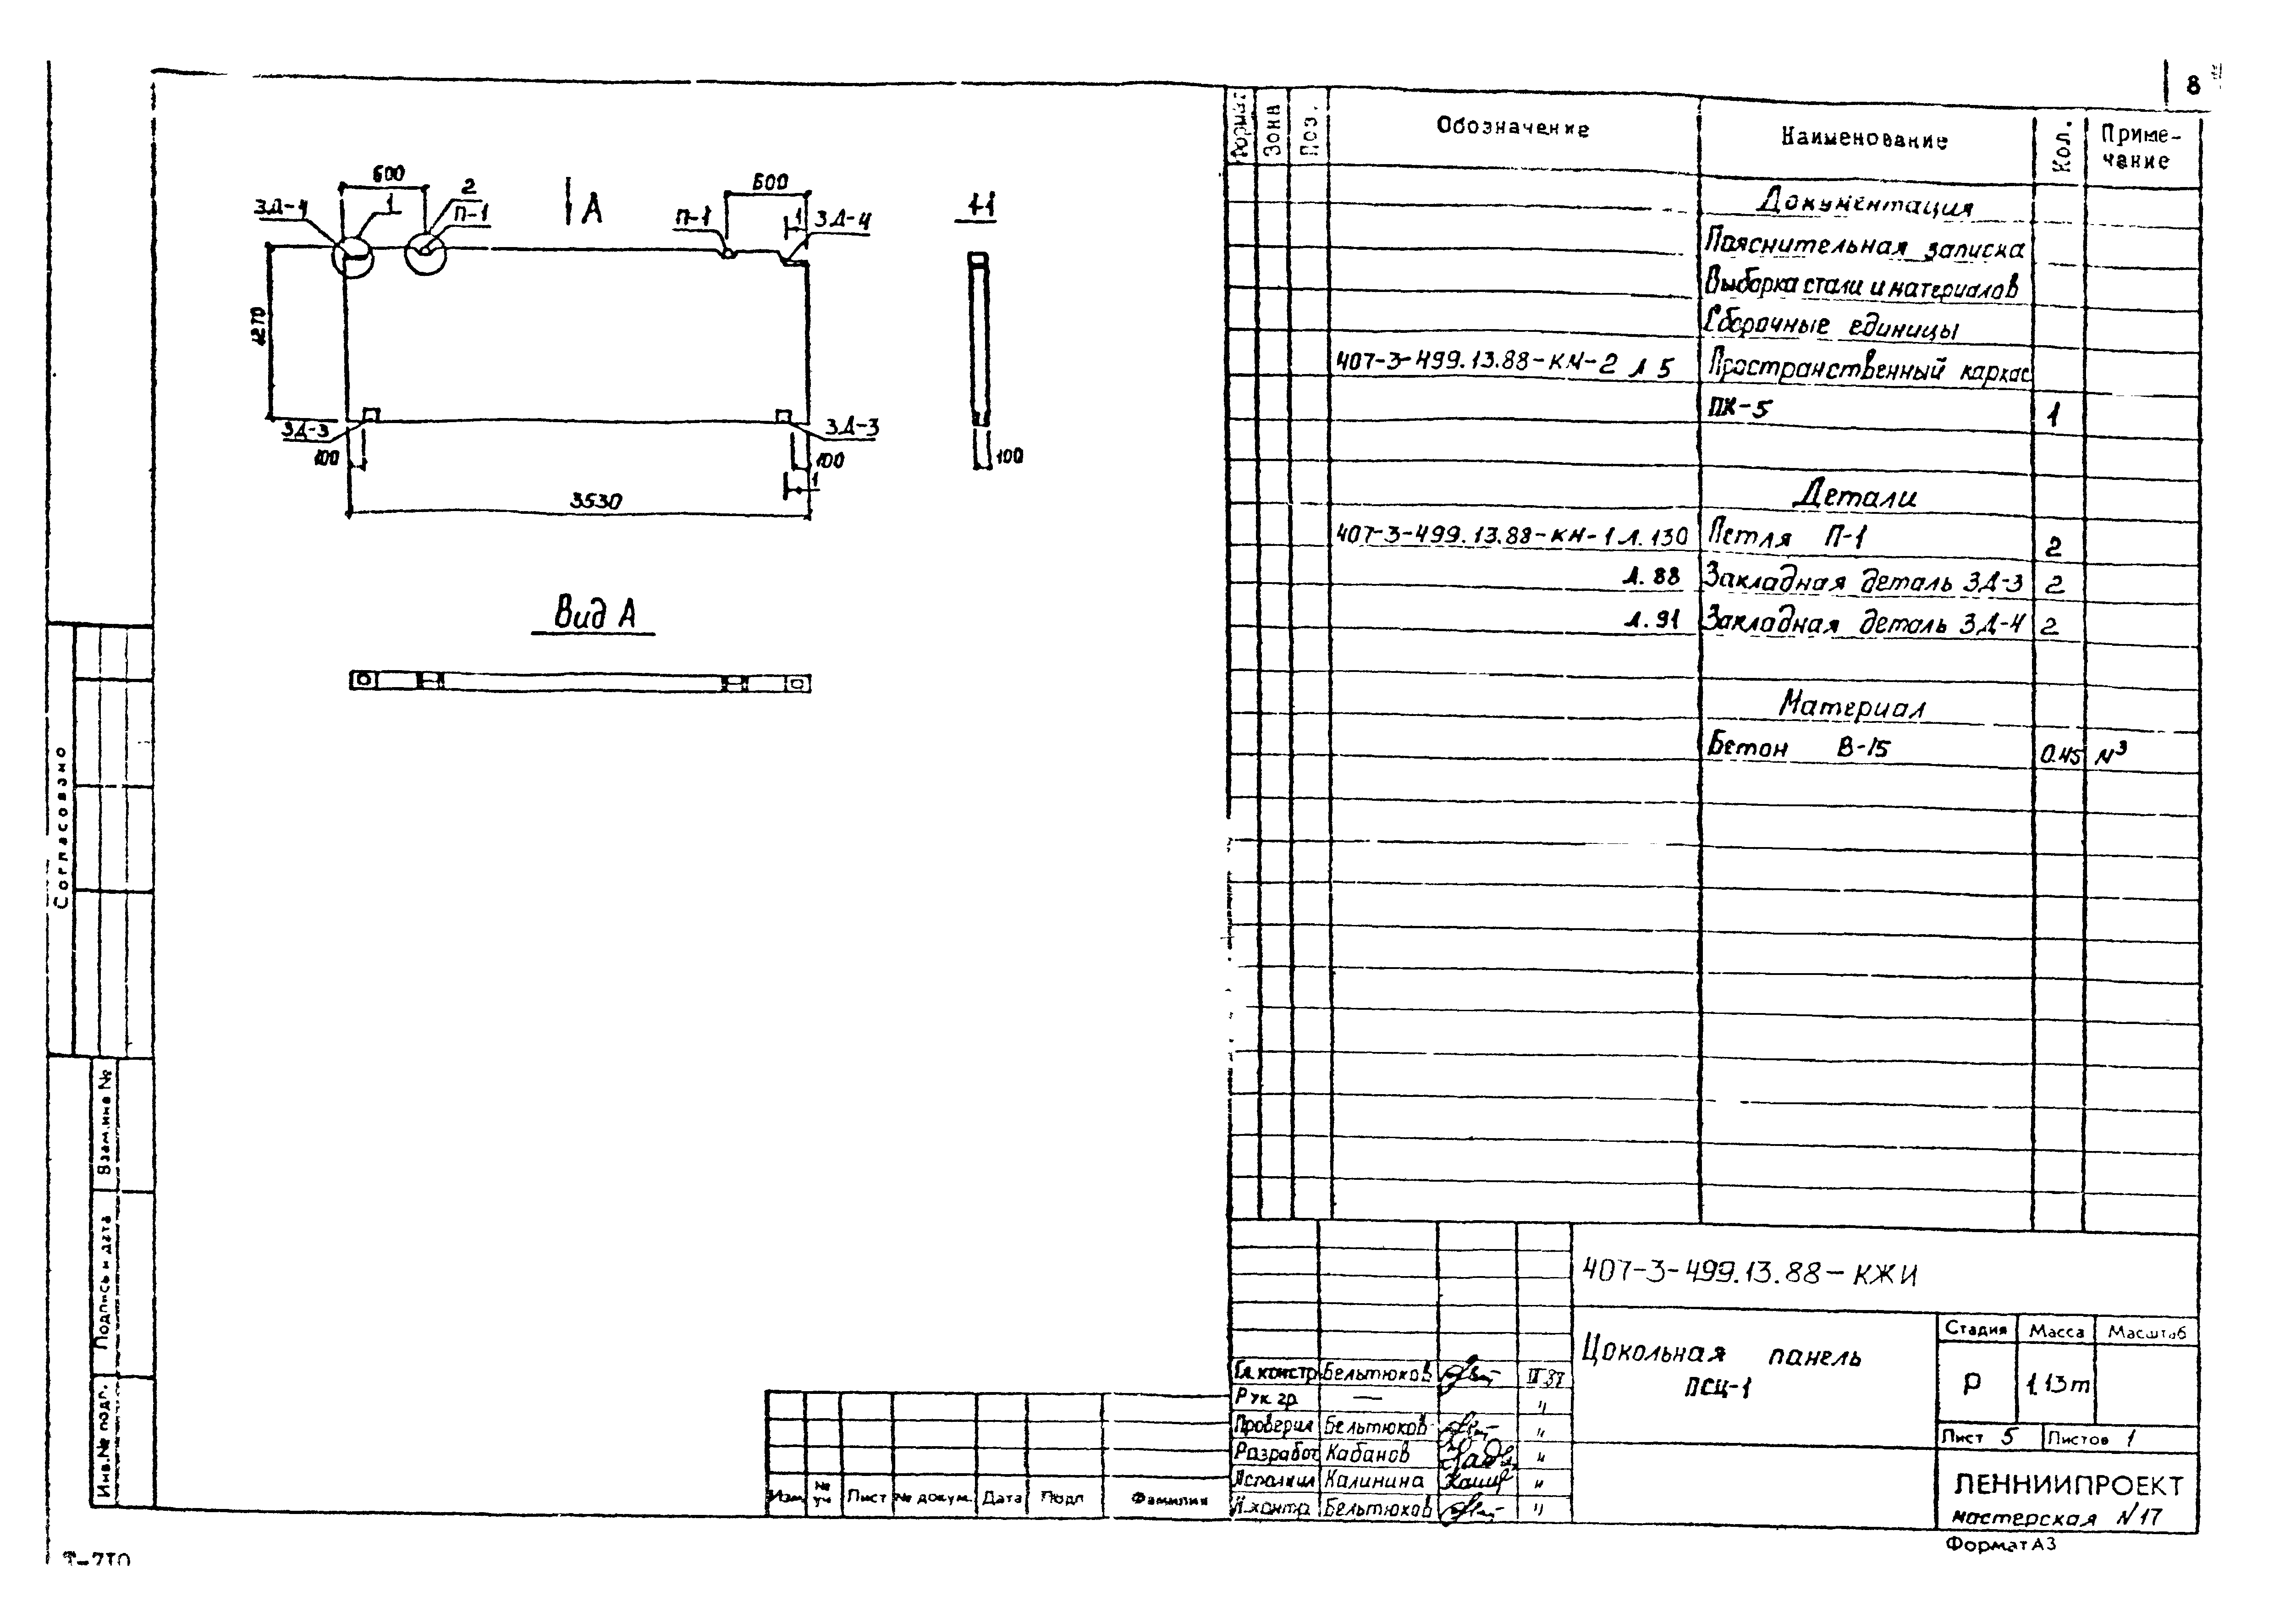 8
600
2
ЗД-4
1
П-1
А
600
П-1
1
ЗД-4
1-1
1270
ЗД-3
ЗД-3
100
100
100
1
3530
Вид А
Формат
Зона
Поз.
Обозначение
Наименование
Кол.
Приме-
чание
Документация
Пояснительная записка
Выборка стали и материалов
Сборочные единицы
407-3-499.13.88-КМ-2 л 5 Пространственный каркас
ПК-5 1
Детали
407-3-499.13.88-КМ-1 л. 130 Петля П-1 2
л. 88 Закладная деталь ЗД-3 2
л. 91 Закладная деталь ЗД-4 2
Материал
Бетон В-15 0.45 м³
Согласовано
Взам.инв №
Подпись и дата
Инв.№ подл.
407-3-499.13.88-КЖИ
Цокольная панель
ПСЦ-1
Стадия Масса Масштаб
Р 1,13т
Лист 5 Листов 1
ЛЕННИИПРОЕКТ
мастерская N17
Гл. констр Бельтюков
Рук. гр. —
Проверил Бельтюков "
Разработ Кабанов "
Исполнил Калинина "
Н.контр. Бельтюков "
Изм № уч Лист № докум. Дата Подп Фамилия
Формат А3